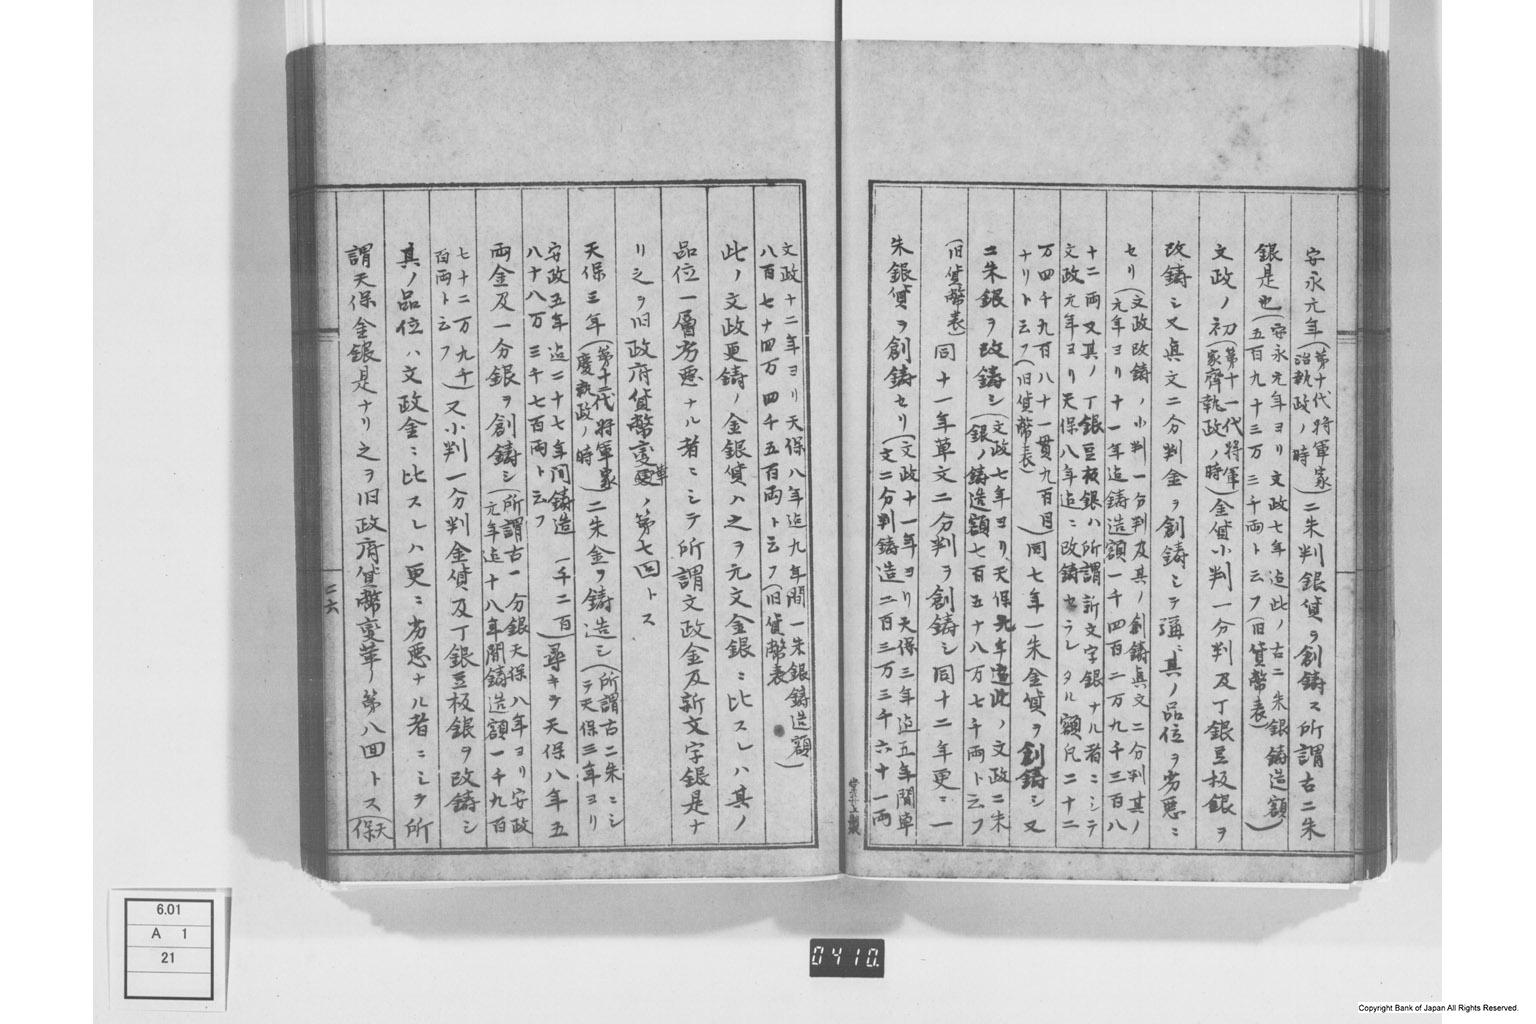 安永元年(第十代将軍家治執政ノ時)二朱判銀貨ヲ創鋳ス所謂古二朱
銀是也(安永元年ヨリ文政七年迠此ノ古二朱銀鋳造額五百九十三万三千両ト云フ(旧貨幣表))
文政ノ初(第十一代将軍家齊執政ノ時)金貨小判一分判及丁銀豆板銀ヲ
改鋳シ又真文二分判金ヲ創鋳シテ彌〻其ノ品位ヲ劣悪ニ
セリ(文政改鋳ノ小判一分判及其ノ創鋳真文二分判其ノ元年ヨリ十一年迠鋳造額一千四百二万九千三百八
十二両又其ノ丁銀豆板銀ハ所謂新文字銀ナル者ニシテ文政元年ヨリ天保八年迠ニ改鋳セラレタル額凡二十二
万四千九百八十一貫九百目ナリト云フ(旧貨幣表))同七年一朱金貨ヲ創鋳シ又
二朱銀ヲ改鋳シ(文政七年ヨリ天保元年迠此ノ文政二朱銀ノ鋳造額七百五十八万七千両ト云フ
(旧貨幣表))同十一年草文二分判ヲ創鋳シ同十二年更ニ一
朱銀貨ヲ創鋳セリ(文政十一年ヨリ天保三年迠五年間草文二分判鋳造二百三万三千六十一両
文政十二年ヨリ天保八年迠九年間一朱銀鋳造額八百七十四万四千五百両ト云フ(旧貨幣表))
此ノ文政更鋳ノ金銀貨ハ之ヲ元文金銀ニ比スレハ其ノ
品位一層劣悪ナル者ニシテ所謂文政金及新文字銀是ナ
リ之ヲ旧政府貨幣変革ノ第七回トス
天保三年(第十一代将軍家慶執政ノ時)二朱金ヲ鋳造シ(所謂古二朱ニシテ天保三年ヨリ
安政五年迠二十七年间鋳造一千二百八十八万三千七百両ト云フ)尋キテ天保八年五
両金及一分銀ヲ創鋳シ(所謂古一分銀天保八年ヨリ安政元年迠十八年間鋳造額一千九百
七十二万九千百両ト云フ)又小判一分判金貨及丁銀豆板銀ヲ改鋳シ
其ノ品位ハ文政金ニ比スレハ更ニ劣悪ナル者ニシテ所
謂天保金銀是ナリ之ヲ旧政府貨幣変革ノ第八回トス(天保
二六
6.01
A 1
21
0410.
Copyright Bank of Japan All Rights Reserved.